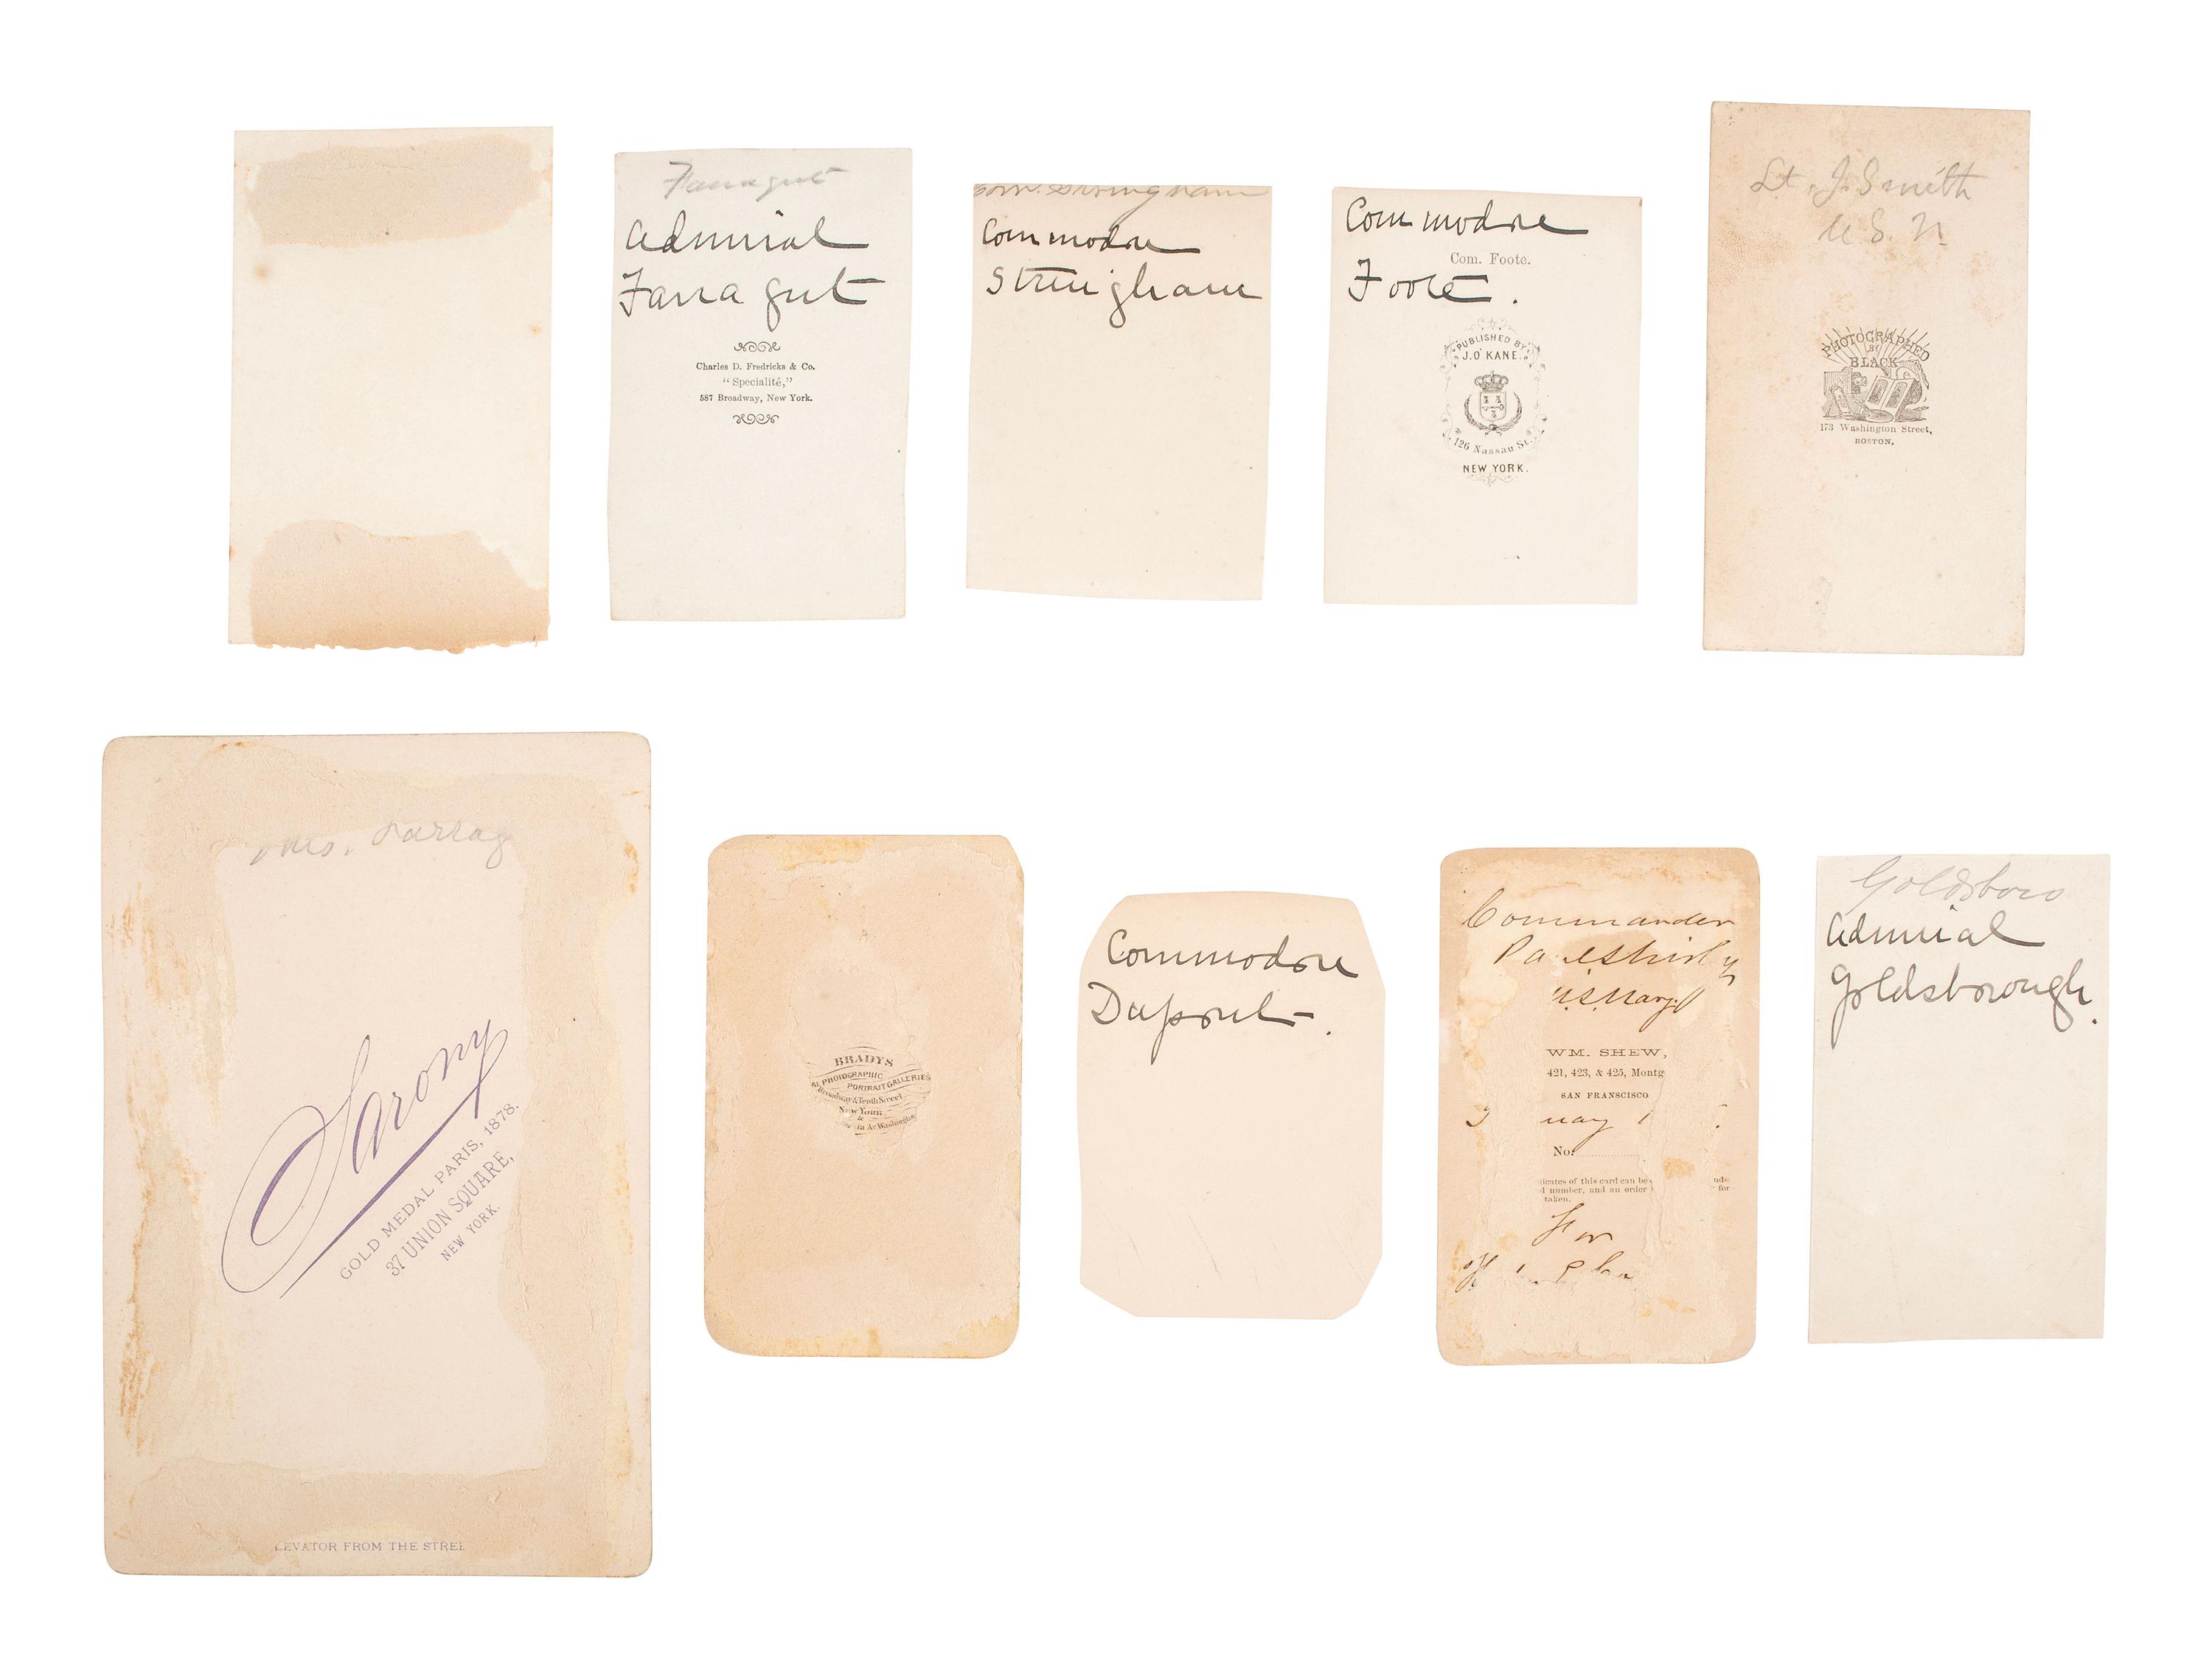 Farragut
Admiral
Farragut
Charles D. Fredricks & Co.
"Specialité,"
587 Broadway, New York.
Com. Stringham
Commodore
Stringham
Commodore
Com. Foote.
Foote.
PUBLISHED BY
J. O'KANE.
126 Nassau St.
NEW YORK.
Lt. J. Smith
U.S.N.
PHOTOGRAPHED
BY
BLACK
173 Washington Street,
BOSTON.
Mrs. Farrag
Sarony
GOLD MEDAL PARIS, 1878.
37 UNION SQUARE,
NEW YORK.
LEVATOR FROM THE STREE
BRADYS
AL PHOTOGRAPHIC
PORTRAIT GALLERIES
Broadway & Tenth Street
New York
&
ia Av Washington
Commodore
Dupont.
Commander
U.S. Navy
WM. SHEW,
421, 423, & 425, Montg
SAN FRANSCISCO
No.
licates of this card can be nd
d number, and an order for
taken.
For
Goldsboro
Admiral
Goldsborough.